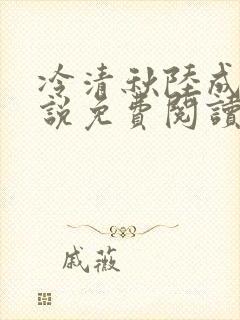 冷清秋陸成
說免費閱讀
戚薇